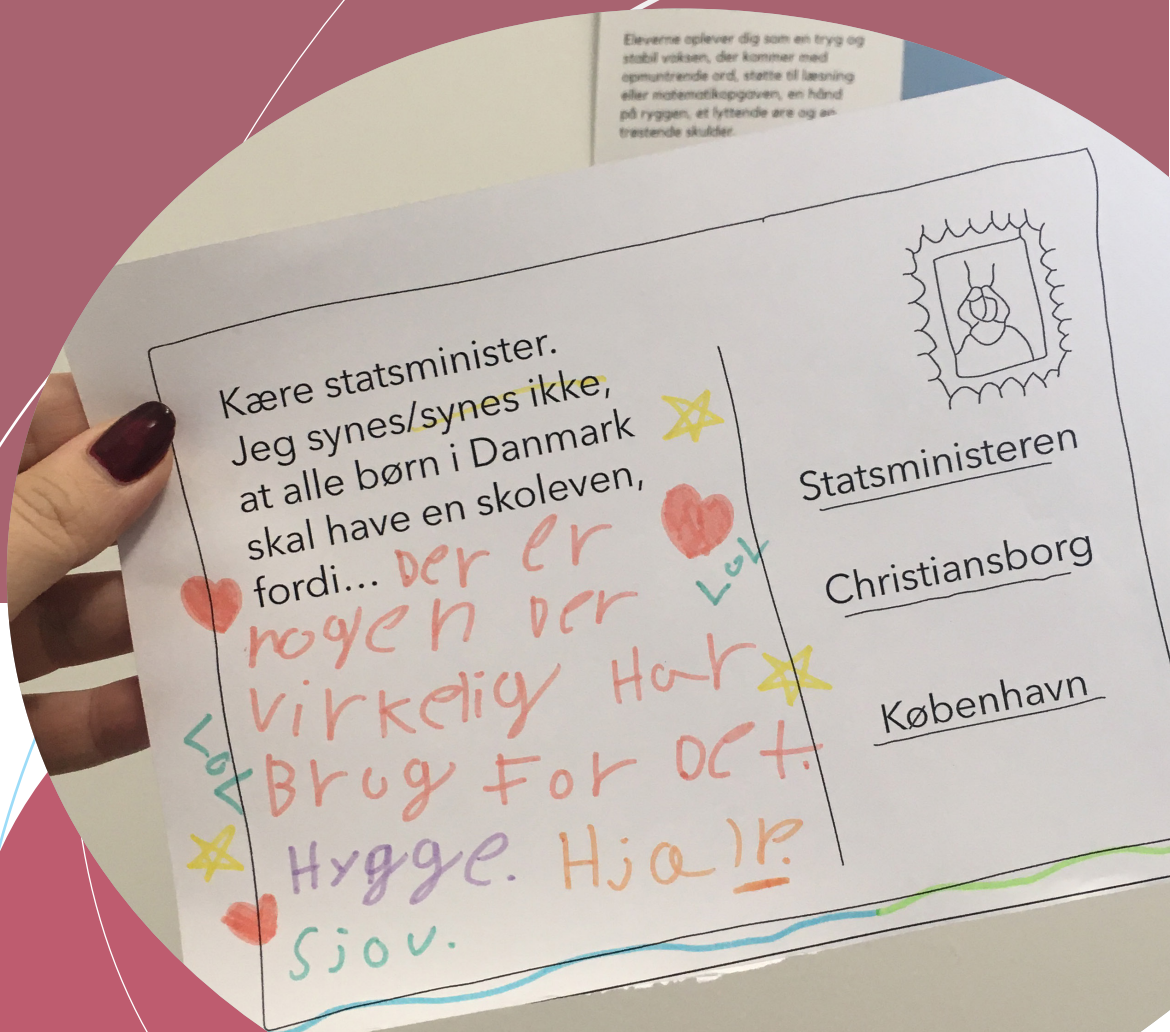 Eleverne oplever dig som en tryg og
stabil voksen, der kommer med
opmuntrende ord, støtte til læsning
eller matematikopgaven, en hånd
på ryggen, et lyttende øre og en
trøstende skulder.
Kære statsminister.
Jeg synes/synes ikke,
at alle børn i Danmark
skal have en skoleven,
fordi... Der er
nogen Der
virkelig Har
Brug For Det.
Hygge. Hjalp.
Sjov.
LoL
LoL
Statsministeren
Christiansborg
København